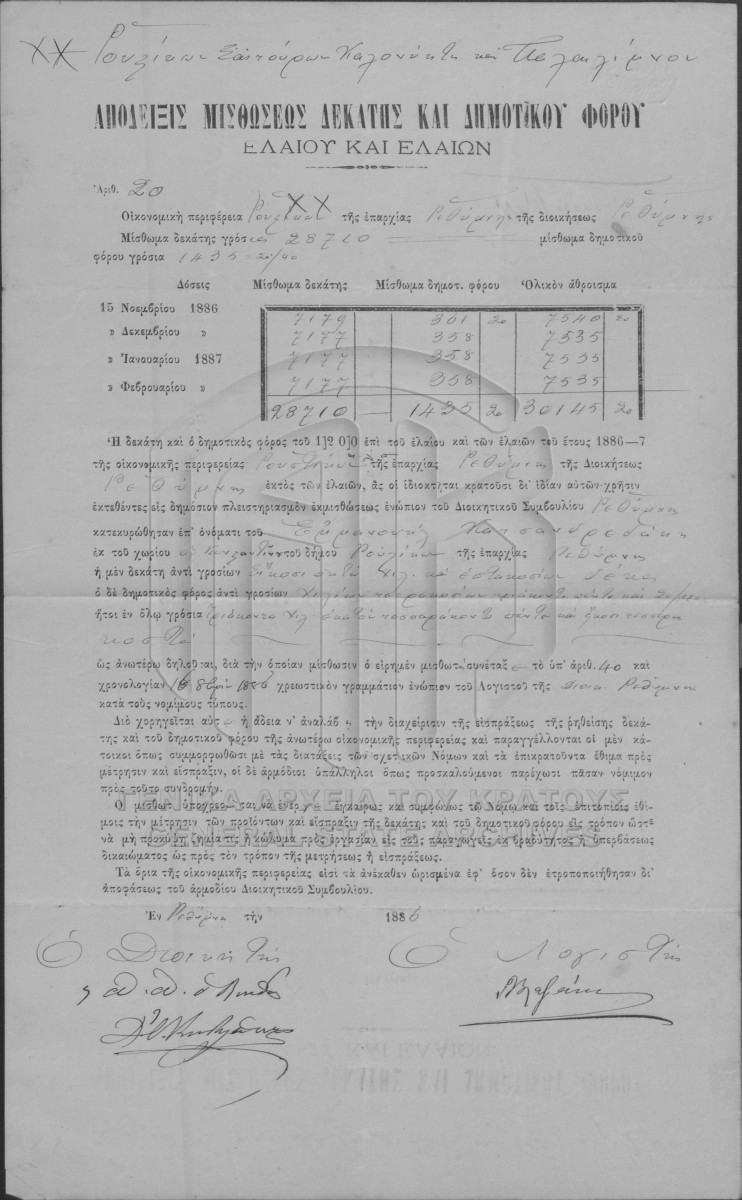 ΑΠΟΔΕΙΞΙΣ ΜΙΣΘΩΣΕΩΣ ΔΕΚΑΤΗΣ ΚΑΙ ΔΗΜΟΤΙΚΟΥ ΦΟΡΟΥ
ΕΛΑΙΟΥ ΚΑΙ ΕΛΑΙΩΝ
Ἀριθ. 20
Οἰκονομικὴ περιφέρεια τῆς ἐπαρχίας Ρεθύμνης τῆς διοικήσεως Ρεθύμνης
Μίσθωμα δεκάτης γρόσια 28710 μίσθωμα δημοτικοῦ
φόρου γρόσια 1435 20/40
Δόσεις Μίσθωμα δεκάτης Μίσθωμα δημοτ. φόρου Ὁλικὸν ἄθροισμα
15 Νοεμβρίου 1886 7179 361 20 7540 20
» Δεκεμβρίου » 7177 358 7535
» Ἰανουαρίου 1887 7177 358 7535
» Φεβρουαρίου » 7177 358 7535
28710 — 1435 20 30145 20
Ἡ δεκάτη καὶ ὁ δημοτικὸς φόρος τοῦ 1]2 0]0 ἐπὶ τοῦ ἐλαίου καὶ τῶν ἐλαιῶν τοῦ ἔτους 1886—7
τῆς οἰκονομικῆς περιφερείας τῆς ἐπαρχίας Ρεθύμνης τῆς Διοικήσεως
Ρεθύμνης ἐκτὸς τῶν ἐλαιῶν, ἃς οἱ ἰδιοκτῆται κρατοῦσι δι' ἰδίαν αὐτῶν χρῆσιν
ἐκτεθέντες εἰς δημόσιον πλειστηριασμὸν ἐκμισθώσεως ἐνώπιον τοῦ Διοικητικοῦ Συμβουλίου Ρεθύμνης
κατεκυρώθησαν ἐπ' ὀνόματι τοῦ Ἐμμανουὴλ
ἐκ τοῦ χωρίου τοῦ δήμου τῆς ἐπαρχίας Ρεθύμνης
ἡ μὲν δεκάτη ἀντὶ γροσίων εἴκοσι ὀκτὼ χιλ. καὶ ἑπτακοσίων δέκα
ὁ δὲ δημοτικὸς φόρος ἀντὶ γροσίων χιλίων τετρακοσίων τριάκοντα πέντε καὶ 20/40
ἤτοι ἐν ὅλῳ γρόσια τριάκοντα χιλ. ἑκατὸν τεσσαράκοντα πέντε καὶ
ὡς ἀνωτέρω δηλοῦται, διὰ τὴν ὁποίαν μίσθωσιν ὁ εἰρημέν μισθωτ συνέταξε τὸ ὑπ' ἀριθ. 40 καὶ
χρονολογίαν 1886 χρεωστικὸν γραμμάτιον ἐνώπιον τοῦ Λογιστοῦ τῆς Διοικ. Ρεθύμνης
κατὰ τοὺς νομίμους τύπους.
Διὸ χορηγεῖται αὐτ ἡ ἄδεια ν' ἀναλάβ τὴν διαχείρισιν τῆς εἰσπράξεως τῆς ῥηθείσης δεκά-
της καὶ τοῦ δημοτικοῦ φόρου τῆς ἀνωτέρω οἰκονομικῆς περιφερείας καὶ παραγγέλλονται οἱ μὲν κά-
τοικοι ὅπως συμμορφωθῶσι μὲ τὰς διατάξεις τῶν σχετικῶν Νόμων καὶ τὰ ἐπικρατοῦντα ἔθιμα πρὸς
μέτρησιν καὶ εἴσπραξιν, οἱ δὲ ἁρμόδιοι ὑπάλληλοι ὅπως προσκαλούμενοι παρέχωσι πᾶσαν νόμιμον
πρὸς τοῦτο συνδρομήν.
Ὁ μισθωτ ὑποχρεοῦται νὰ ἐνεργ ἐγκαίρως καὶ συμφώνως τῷ Νόμῳ καὶ τοῖς ἐπιτοπίοις ἐθί-
μοις τὴν μέτρησιν τῶν προϊόντων καὶ εἴσπραξιν τῆς δεκάτης καὶ τοῦ δημοτικοῦ φόρου εἰς τρόπον ὥστε
νὰ μὴ προκύψῃ ζημία τις ἢ κώλυμα πρὸς ἐργασίαν εἰς τοὺς παραγωγεῖς ἐκ βραδύτητος ἢ ὑπερβάσεως
δικαιώματος ὡς πρὸς τὸν τρόπον τῆς μετρήσεως ἢ εἰσπράξεως.
Τὰ ὅρια τῆς οἰκονομικῆς περιφερείας εἰσὶ τὰ ἀνέκαθεν ὡρισμένα ἐφ' ὅσον δὲν ἐτροποποιήθησαν δι'
ἀποφάσεως τοῦ ἁρμοδίου Διοικητικοῦ Συμβουλίου.
Ἐν Ρεθύμνῃ τὴν 1886
Ὁ Διοικητὴς Ὁ Λογιστὴς
ΓΕΝΙΚΑ ΑΡΧΕΙΑ ΤΟΥ ΚΡΑΤΟΥΣ
GENERAL STATE ARCHIVES